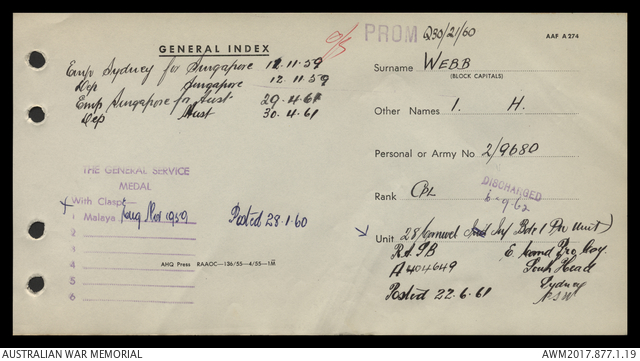 GENERAL INDEX
o/s
Emp Sydney for Singapore 12.11.59
Dep Singapore 12.11.59
Emp Singapore for Aust 29.4.61
Dep Aust 30.4.61
THE GENERAL SERVICE
MEDAL
With Clasp:—
1 Malaya Nov 1959 Posted 28.1.60
2
3
4
5
6
AHQ Press RAAOC—136/55—4/55—1M
PROM Q30/21/60
AAF A 274
Surname WEBB
(BLOCK CAPITALS)
Other Names I. H.
Personal or Army No 2/9680
Rank CPL
DISCHARGED
6-9-62
Unit 28 Inf Bde (Pn Unit)
E. Comd Pro Coy.
A404649 South Head
Sydney
Posted 22.6.61 NSW
AUSTRALIAN WAR MEMORIAL
AWM2017.877.1.19